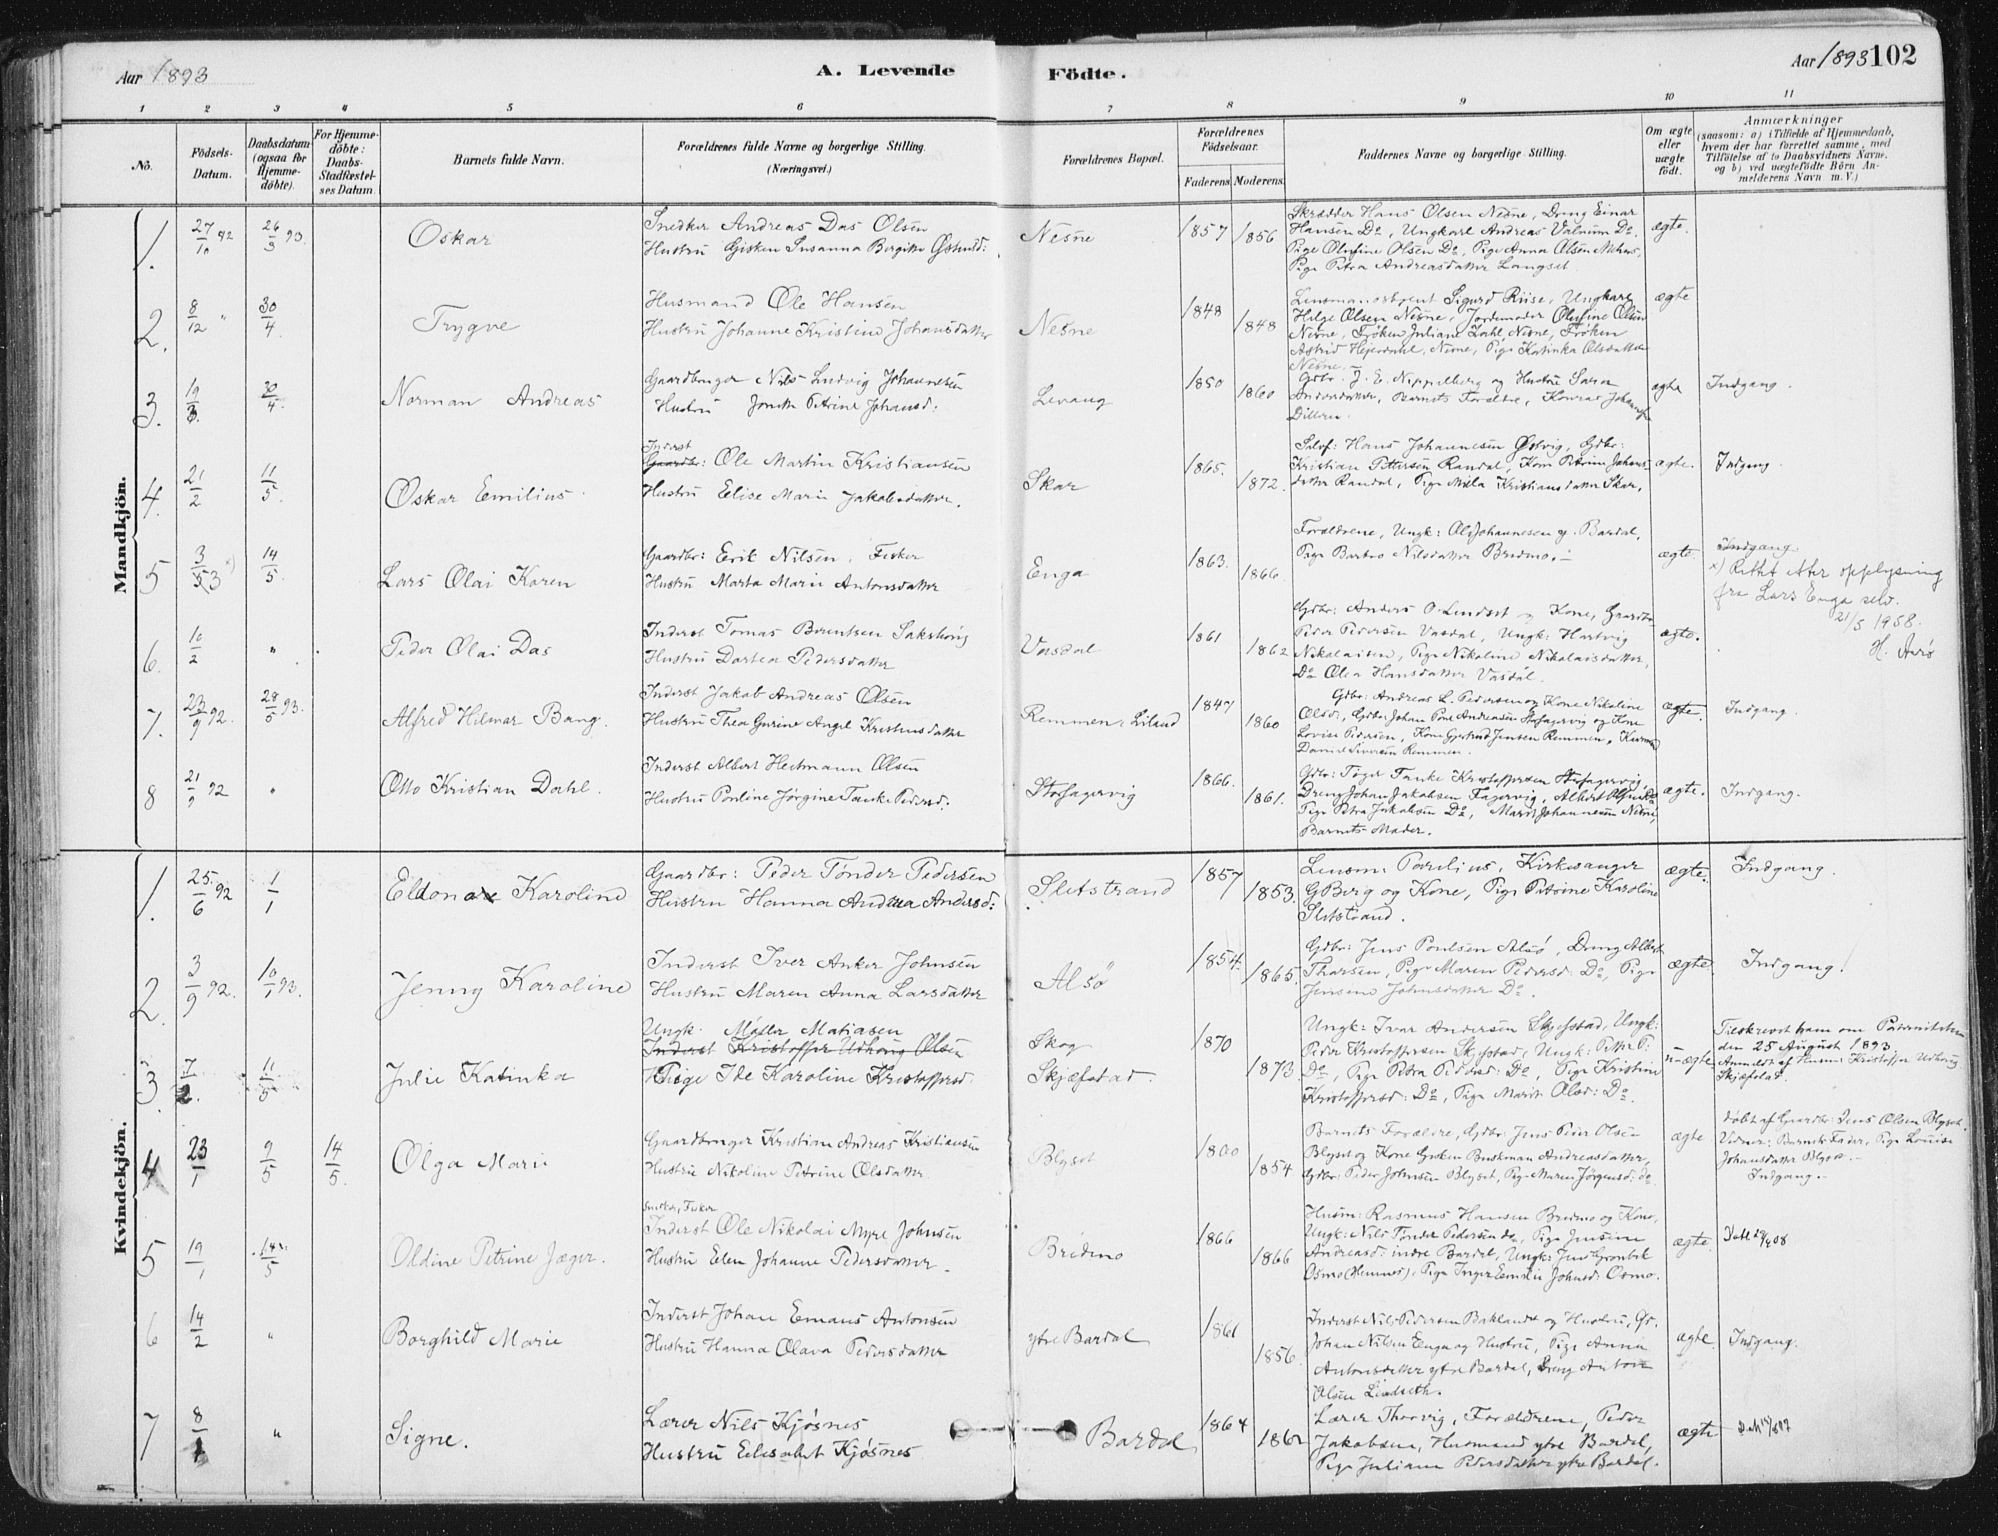 Aar 1893
A. Levende
Födte.
Aar 1893 102
1 2 3 4 5 6 7 8 9 10 11
No.
Födsels-
Datum.
Daabsdatum
(ogsaa for
Hjemme-
döbte).
For Hjemme-
döbte:
Daabs-
Stadfæstel-
ses Datum.
Barnets fulde Navn.
Forældrenes fulde Navne og borgerlige Stilling.
(Næringsvei.)
Forældrenes Bopæl.
Forældrenes
Födselsaar.
Faderens. Moderens.
Faddernes Navne og borgerlige Stilling.
Om ægte
eller
uægte
født.
Anmærkninger
(saasom: a) i Tilfælde af Hjemmedaab,
hvem der har forrettet samme, med
Tilföielse af to Daabsvidners Navne,
og b) ved uægtefödte Börn An-
melderens Navn m. V.)
Mandkjön.
1. 27/10 92 26/3 93. Oskar
Snedker Andreas Das Olsen
Hustru Gisken Susanna Birgitte
Nesne 1857 1856
Skrædder Hans Olsen Nesne, Dreng Einar
Hansen Do, Ungkarl Andreas Valnum Do,
Pige Olufine Olsen Do, Pige Anna Olsen
Pige Petra Andreasdatter Langset.
ægte.
2. 8/12 " 30/4. Trygve
Husmand Ole Hansen
Hustru Johanne Kristine Johansdatter
Nesne 1848 1848
Sigurd Riise, Ungkarl
Helge Olsen Nesne, Jordemoder Olufine Olsen
Nesne, Frøken Juliane Zahl, Nesne, Frøken
Astrid Hjerdahl, Nesne, Pige Katinka Olsdatter
Nesne.
ægte
3. 19/3. 30/4. Norman Andreas
Gaardbruger Nils Ludvig Johannesen
Hustru Petrine Johansd:
Levang 1850 1860
Gdbr. J. E. Nippelberg og Hustru Sara
Barnets Forældre, Konrad
Dilleren.
ægte Indgang.
4. 21/2 11/5. Oskar Emilius.
Inderst
Gaardbr: Ole Martin Kristiansen
Hustru Elise Marie Jakobsdatter.
Skar 1865. 1872.
Selvf: Hans Johannesen Østvig, Gdbr:
Kristian Pettersen Randal, Kone Petrine Johans-
datter Randal, Pige Kristiansdatter Skar.
ægte. Indgang.
5 3/53 x) 14/5. Lars Olai Koren
Gaardbr: Erik Nilsen, Fisker
Hustru Marta Marie Antonsdatter
Enga 1863. 1866.
Forældrene, Ungk: Johannesen y. Bardal,
Pige Barbro Nilsdatter Bredmo.
ægte. Indgang.
x) Rettet etter opplysning
fra Lars Enga selv.
21/5 1958.
6. 10/2 " Peder Olai Das
Inderst Tomas Berentsen Sakshaug
Hustru Dortea Pedersdatter
Vasdal 1861 1862
Gdbr: Anders O. Lindset og Kone, Gaardbr
Peder Pedersen Vasdal, Ungk: Hartvig
Nikolaisen, Pige Nikoline Nikolaisdatter,
Do Olea Hansdatter Vasdal.
ægte. H.
7. 23/9 92. 28/5 93. Alfred Hilmar Bang.
Inderst Jakob Andreas Olsen
Hustru Thea Gurine Angel Kristensdatter
Remmen, Liland 1847 1860
Gdbr: Andreas L. Pedersen og Kone Nikoline
Olsd., Gdbr: Johan Andreasen Storfagervig og Kone
Lovise Pedersen, Kone Gjertrud Jensen Remmen,
Daniel Remmen.
ægte. Indgang.
8 21/9 92 " Otto Kristian Dahl.
Inderst Albert Heitmann Olsen
Hustru Pauline Jørgine Tanke Pedersd:
Storfagervig 1866. 1861.
Gdbr: Tanke Kristoffersen Storfagervig,
Dreng Johan Jakobsen Fagervig, Albert Do
Pige Petra Jakobsen Do, Marit Johannesen Nesne,
Barnets Moder.
ægte. Indgang.
Kvindekjön.
1. 25/6 92 1/1 Eldona Karoline
Gaardbr: Peder Tønder Pedersen
Hustru Hanna Andrea Andersd:
Sletstrand 1857 1853.
Lensm: Parelius, Kirkesanger
G Berg og Kone, Pige Petrine Karoline
Sletstrand.
ægte. Indgang.
2. 3/9 92. 10/1 93. Jenny Karoline
Inderst Iver Anker Johnsen
Hustru Maren Anna Larsdatter
Alsø 1854. 1865.
Gdbr: Jens Poulsen Alsø, Dreng Albert
Pige Maren Pedersd: Do, Pige
Jensine Johnsdatter Do.
ægte. Indgang!
3. 7/2. 11/5 Julie Katinka
Ungk. Møller Matiasen
Inderst Kristoffer Udhaug Olsen
Pige Ide Karoline Kristoffersd.
Skog
Skjæfstad. 1870 1873
Ungk: Ivar Andersen Skjefstad, Ungk:
Peder Kristoffersen Skjefstad, Ungk: Petter P.
Do, Pige Petra Pedersd: Do, Pige Kristine
Kristoffersd: Do, Pige Marit Olsd: Do.
u-ægte
Tilskrevet ham om Paterniteten
den 25 August 1893.
Anmeldt af Husm: Kristoffer Udhaug
Skjæfstad.
4 23/1 9/5 14/5. Olga Marie
Gaardbruger Kristian Andreas Kristiansen
Hustru Nikoline Petrine Olsdatter
Blyset 1860 1854
Barnets Forældre, Gdbr: Jens Peter Olsen
Blyset og Kone Andreasdatter,
Gdbr: Peder Johnsen Blyset, Pige Maren Jørgensd: do
ægte
døbt af Gaardbr: Jens Olsen Blyset.
Vidner: Barnets Fader, Pige Louise
Johansdatter Blyset.
Indgang.
5 19/1 14/5 Oldine Petrine Jæger.
Snekker, Fisker
Inderst Ole Nikolai Myre Johnsen
Hustru Elen Johanne Pedersdatter.
Bredmo 1866 1866
Husm: Rasmus Hansen Bredmo og Kone,
Ungk: Nils Tønder Pedersen do, Pige Jensine
Andreasd: indre Bardal, Ungk: Jens
Osmo (Hemnes), Pige Inger Emelie Johnsd: Osmo.
ægte.
6 14/2 " Borghild Marie
Inderst Johan Emaus Antonsen
Hustru Hanna Olava Pedersdatter
ytre Bardal 1861 1856.
Inderst Nils Pedersen Baklandet og Hustru,
Johan Nilsen Enga og Hustru, Pige Anna
Antonsdatter ytre Bardal, Dreng Anton
Olsen Lindseth.
ægte. Indgang.
7 8/1 " Signe.
Lærer Nils Kjøsnes
Hustru Elisabet Kjøsnes
Bardal 1864 1862
Lærer Thorvig, Forældrene, Peder
Jakobsen, Husmand ytre Bardal,
Pige Juliane Pedersdatter ytre Bardal.
ægte